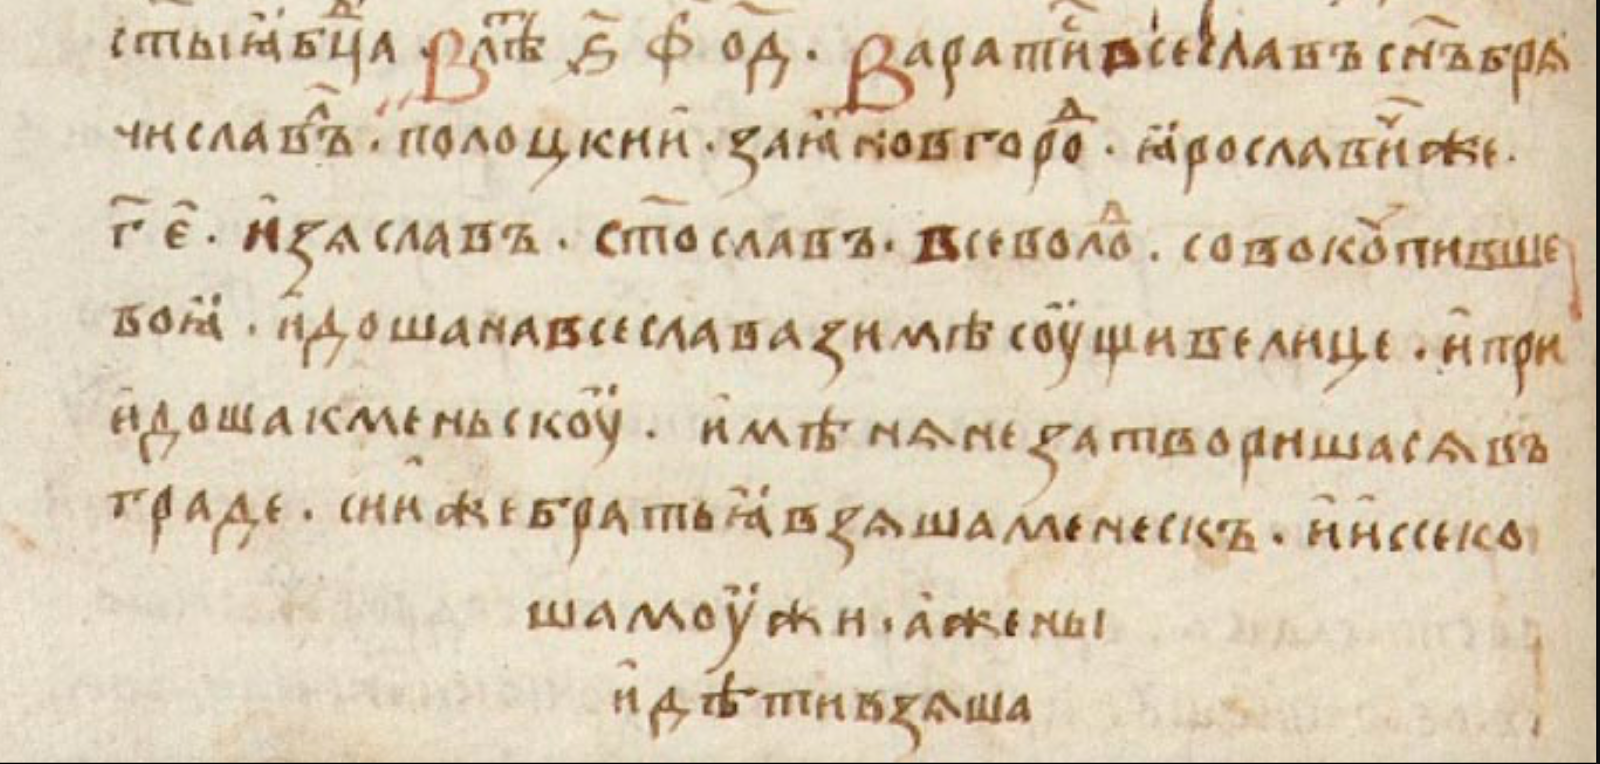 ст҃ыꙗ бц҃а . В лѣⷮ ҂ѕ҃ ф҃ о҃д . В рати всеславъ сн҃ъ брѧ
числавлъ . полоцкии . заꙗ новгороⷣ . ꙗрославиⷱ же .
г҃ е҃ . изѧславъ . ст҃ославъ . всеволоⷣ . совокѹпивше
воꙗ . идоша на всеслава зимѣ соущи велице . и при
идоша к меньскоу . и мѣнѧне затворишасѧ въ
граде . сии же братьꙗ взѧша менескъ . и иссеко
ша моужи . а жены
и дѣти взѧша